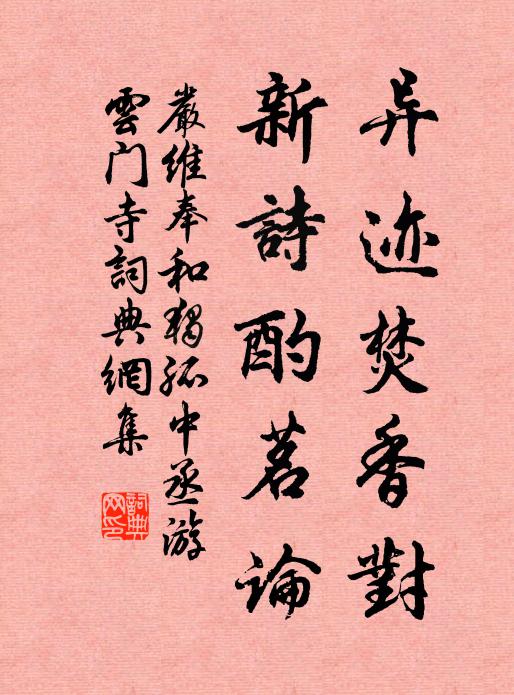 异迹焚香對
新詩酌茗論
嚴維奉和獨孤中丞游
雲门寺詞典網集
詞典網印